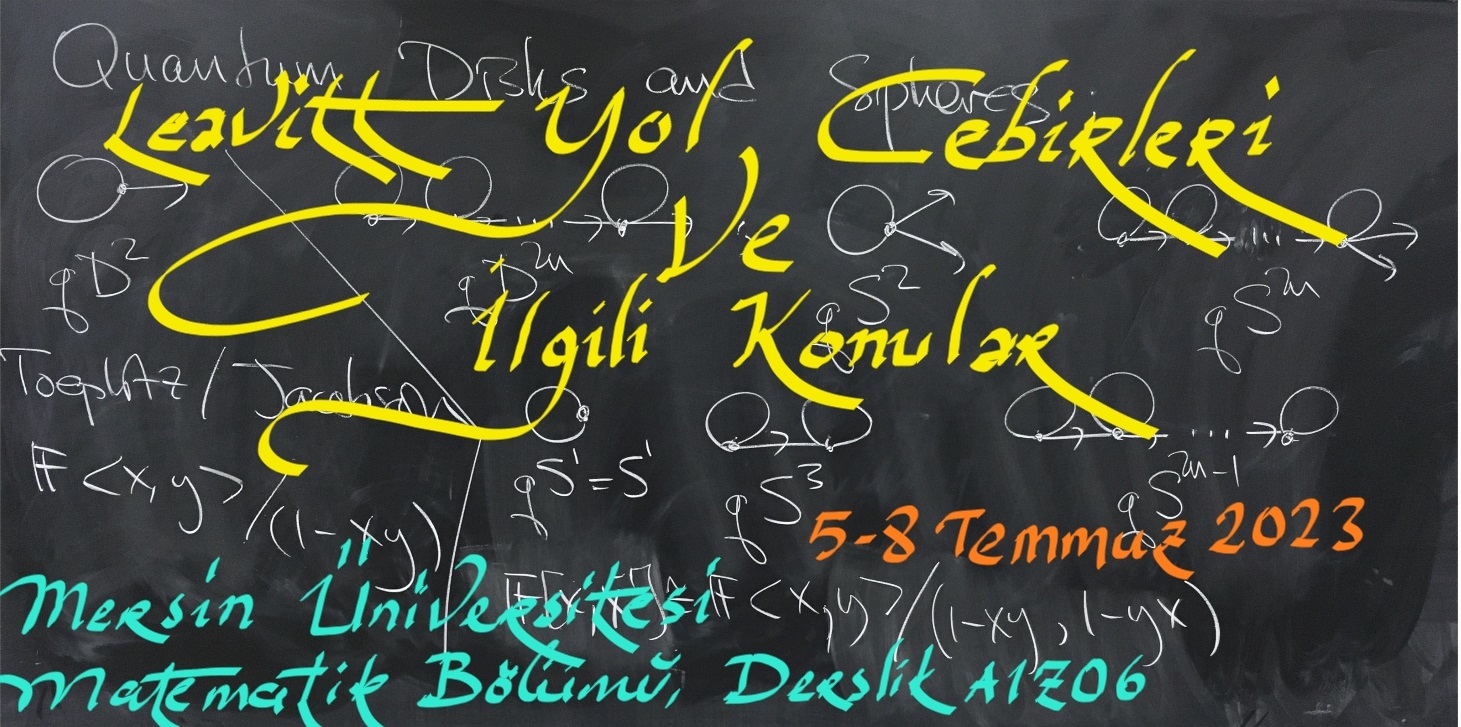 Quantum Disks and Spheres
Leavitt Yol Cebirleri
Ve
İlgili Konular
qD²
qD²ⁿ
qS²
qS²ⁿ
Toeplitz / Jacobson
F<x,y>/(1-xy)
qS¹=S¹
qS³
qS²ⁿ⁻¹
5-8 Temmuz 2023
F[x,x⁻¹]=F<x,y>/(1-xy, 1-yx)
Mersin Üniversitesi
Matematik Bölümü, Derslik A1Z06